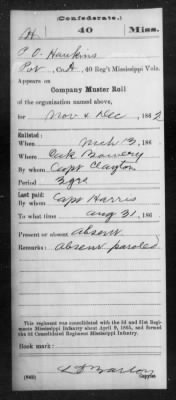 (Confederate.)
H 40 Miss.
P. O. Hawkins
Pvt, Co. A, 40 Reg't Mississippi Vols.
Appears on
Company Muster Roll
of the organization named above,
for Nov & Dec, 1862
Enlisted:
When Mch 3, 186
Where Oak Bowery
By whom Capt Clayton
Period 3 yrs
Last paid:
By whom Capt Harris
To what time Aug 31, 186
Present or absent absent
Remarks: Absent paroled
This regiment was consolidated with the 3d and 31st Regiments Mississippi Infantry about April 9, 1865, and formed the 3d Consolidated Regiment Mississippi Infantry.
Book mark:
(642) Copyist.